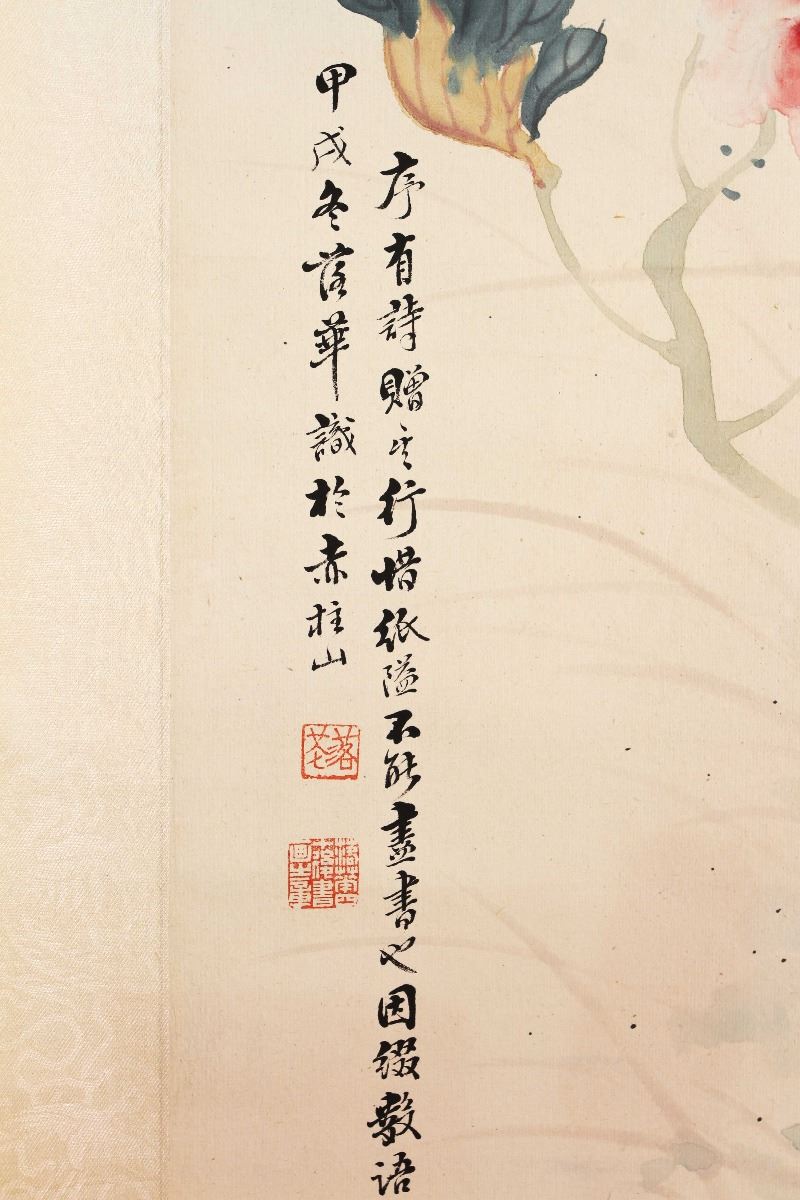 序有詩贈其行惜紙隘不能盡書也因綴數語
甲戌冬落華識於赤柱山
落花